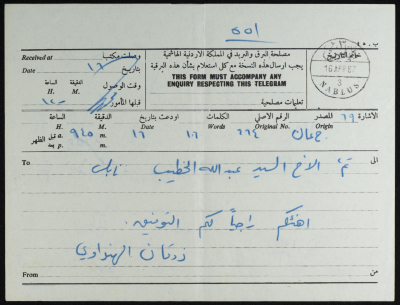 501
ب. ٤٠
مصلحة البرق والبريد في المملكة الاردنية الهاشمية
يجب ارسال هذه النسخة مع كل استعلام بشأن هذه البرقية
THIS FORM MUST ACCOMPANY ANY
ENQUIRY RESPECTING THIS TELEGRAM
تعليمات مصلحية
Received at
وصلت مكتبها
Date
بتاريخ
١٦
الساعة
الدقيقة
وقت الوصول
H.
M.
قبلها المأمور
خاتم التاريخ
NABLUS
الاشارة
٦٩
المصدر
الرقم الاصلي
الكلمات
اودعت بتاريخ
الدقيقة
الساعة
Original No.
Words
Date
M.
H.
عمان
٢٦٤
١٦
١٦
٩٤٥
a.
m.
قبل
الظهر
p.
m.
بعد
To
الى
الاخ السيد عبدالله الخطيب نابلس
اهنئكم راجياً لكم التوفيق.
ذوقان الهنداوي
From
من